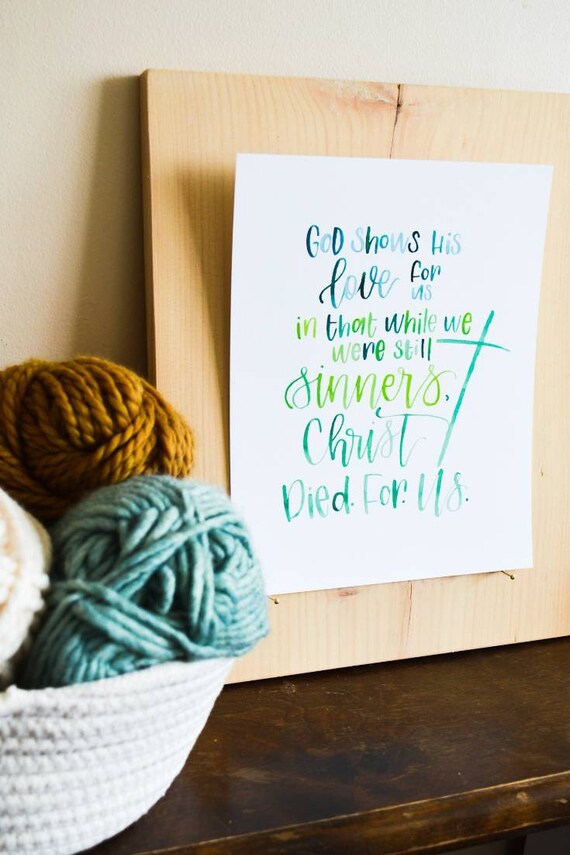 God shows His
love for us
in that while we
were still
sinners,
Christ
Died. For. Us.